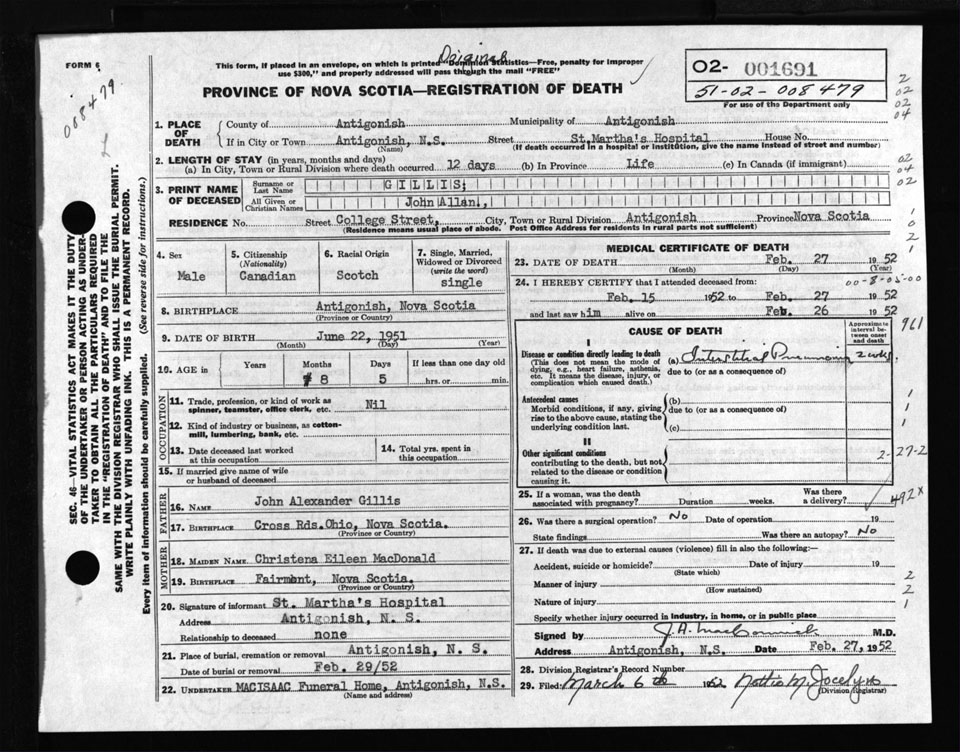 FORM 6
Original
This form, if placed in an envelope, on which is printed "Dominion Statistics—Free, penalty for improper
use $300," and properly addressed will pass through the mail "FREE"
PROVINCE OF NOVA SCOTIA—REGISTRATION OF DEATH
02- 001691
51-02-008479
For use of the Department only
008479
2
02
02
04
1. PLACE OF DEATH
County of Antigonish Municipality of Antigonish
If in City or Town Antigonish, N.S. Street St.Martha's Hospital House No.
(Name) (If death occurred in a hospital or institution, give the name instead of street and number)
2. LENGTH OF STAY (in years, months and days)
(a) In City, Town or Rural Division where death occurred 12 days (b) In Province Life (c) In Canada (if immigrant)
02
04
02
3. PRINT NAME OF DECEASED
Surname or Last Name GILLIS,
All Given or Christian Names John Allan.,
RESIDENCE No. Street College Street, City, Town or Rural Division Antigonish Province Nova Scotia
(Residence means usual place of abode. Post Office Address for residents in rural parts not sufficient)
1
0
2
1
4. Sex Male
5. Citizenship (Nationality) Canadian
6. Racial Origin Scotch
7. Single, Married, Widowed or Divorced (write the word) single
8. BIRTHPLACE Antigonish, Nova Scotia
(Province or Country)
9. DATE OF BIRTH June 22, 1951
(Month) (Day) (Year)
10. AGE in Years Months 8 Days 5 If less than one day old hrs. or min.
OCCUPATION
11. Trade, profession, or kind of work as spinner, teamster, office clerk, etc. Nil
12. Kind of industry or business, as cotton-mill, lumbering, bank, etc.
13. Date deceased last worked at this occupation
14. Total yrs. spent in this occupation
15. If married give name of wife or husband of deceased
FATHER
16. NAME John Alexander Gillis
17. BIRTHPLACE Cross Rds.Ohio, Nova Scotia.
(Province or Country)
MOTHER
18. MAIDEN NAME Christena Eileen MacDonald
19. BIRTHPLACE Fairmont, Nova Scotia.
(Province or Country)
20. Signature of informant St. Martha's Hospital
Address Antigonish, N. S.
Relationship to deceased none
21. Place of burial, cremation or removal Antigonish, N. S.
Date of burial or removal Feb. 29/52
22. UNDERTAKER MACISAAC Funeral Home, Antigonish, N.S.
(Name and address)
MEDICAL CERTIFICATE OF DEATH
23. DATE OF DEATH Feb. 27 1952
(Month) (Day) (Year)
24. I HEREBY CERTIFY that I attended deceased from: 00-8-05-00
Feb. 15 1952 to Feb. 27 1952
and last saw him alive on Feb. 26 1952
CAUSE OF DEATH
Approximate interval between onset and death
961
I
Disease or condition directly leading to death
(This does not mean the mode of dying, e.g., heart failure, asthenia, etc. It means the disease, injury, or complication which caused death.)
(a) Interstitial Pneumonia 2 wks.
due to (or as a consequence of)
Antecedent causes
Morbid conditions, if any, giving rise to the above cause, stating the underlying condition last.
(b)
due to (or as a consequence of)
(c)
1
1
1
II
Other significant conditions
contributing to the death, but not related to the disease or condition causing it.
2-27-2
25. If a woman, was the death associated with pregnancy? Duration weeks. Was there a delivery?
492X
26. Was there a surgical operation? No Date of operation 19
State findings Was there an autopsy? No
27. If death was due to external causes (violence) fill in also the following:—
Accident, suicide or homicide? Date of injury 19
(State which)
Manner of injury
(How sustained)
Nature of injury
Specify whether injury occurred in industry, in home, or in public place
2
2
1
Signed by J.A. MacCormick M.D.
Address Antigonish, N.S. Date Feb. 27, 1952
28. Division Registrar's Record Number
29. Filed: March 6th 1952
(Division Registrar)
SEC. 46—VITAL STATISTICS ACT MAKES IT THE DUTY
OF THE UNDERTAKER OR PERSON ACTING AS UNDER-
TAKER TO OBTAIN ALL THE PARTICULARS REQUIRED
IN THE "REGISTRATION OF DEATH" AND TO FILE THE
SAME WITH THE DIVISION REGISTRAR WHO SHALL ISSUE THE BURIAL PERMIT.
WRITE PLAINLY WITH UNFADING INK. THIS IS A PERMANENT RECORD.
Every item of information should be carefully supplied. (See reverse side for instructions.)